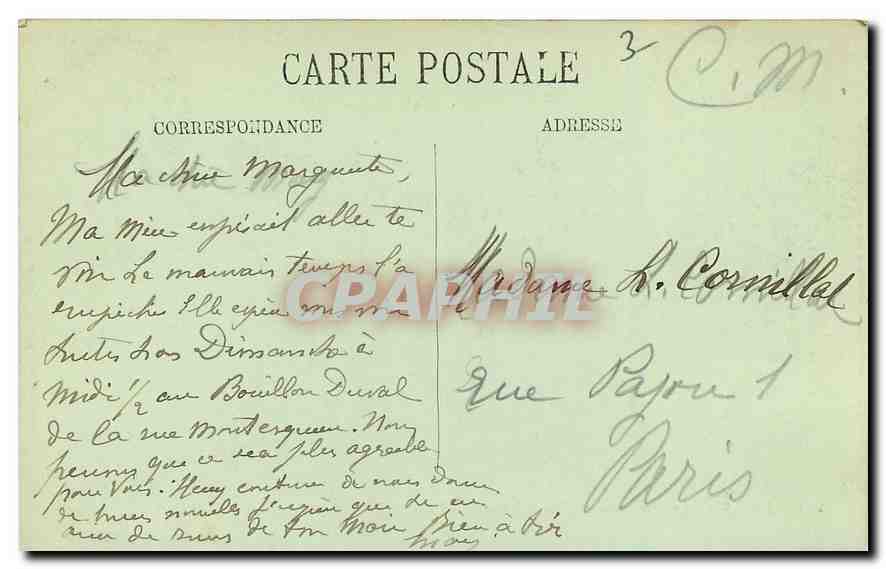 3
C. M.
CARTE POSTALE
CORRESPONDANCE
ADRESSE
Ma chère Marguerite,
Ma Mère espérait aller te
voir Le mauvais temps l'a
empêchée Elle
toutes Dimanche à
midi 1/2 au Bouillon Duval
de la rue Montesquieu. Nous
pensons que ce sera plus agréable
pour vous. Henry continue de nous donner
de bonnes nouvelles J'espère que
de ton Bien à toi
Madame L. Cornillat
rue Pajou 1
Paris
CPAPHIL